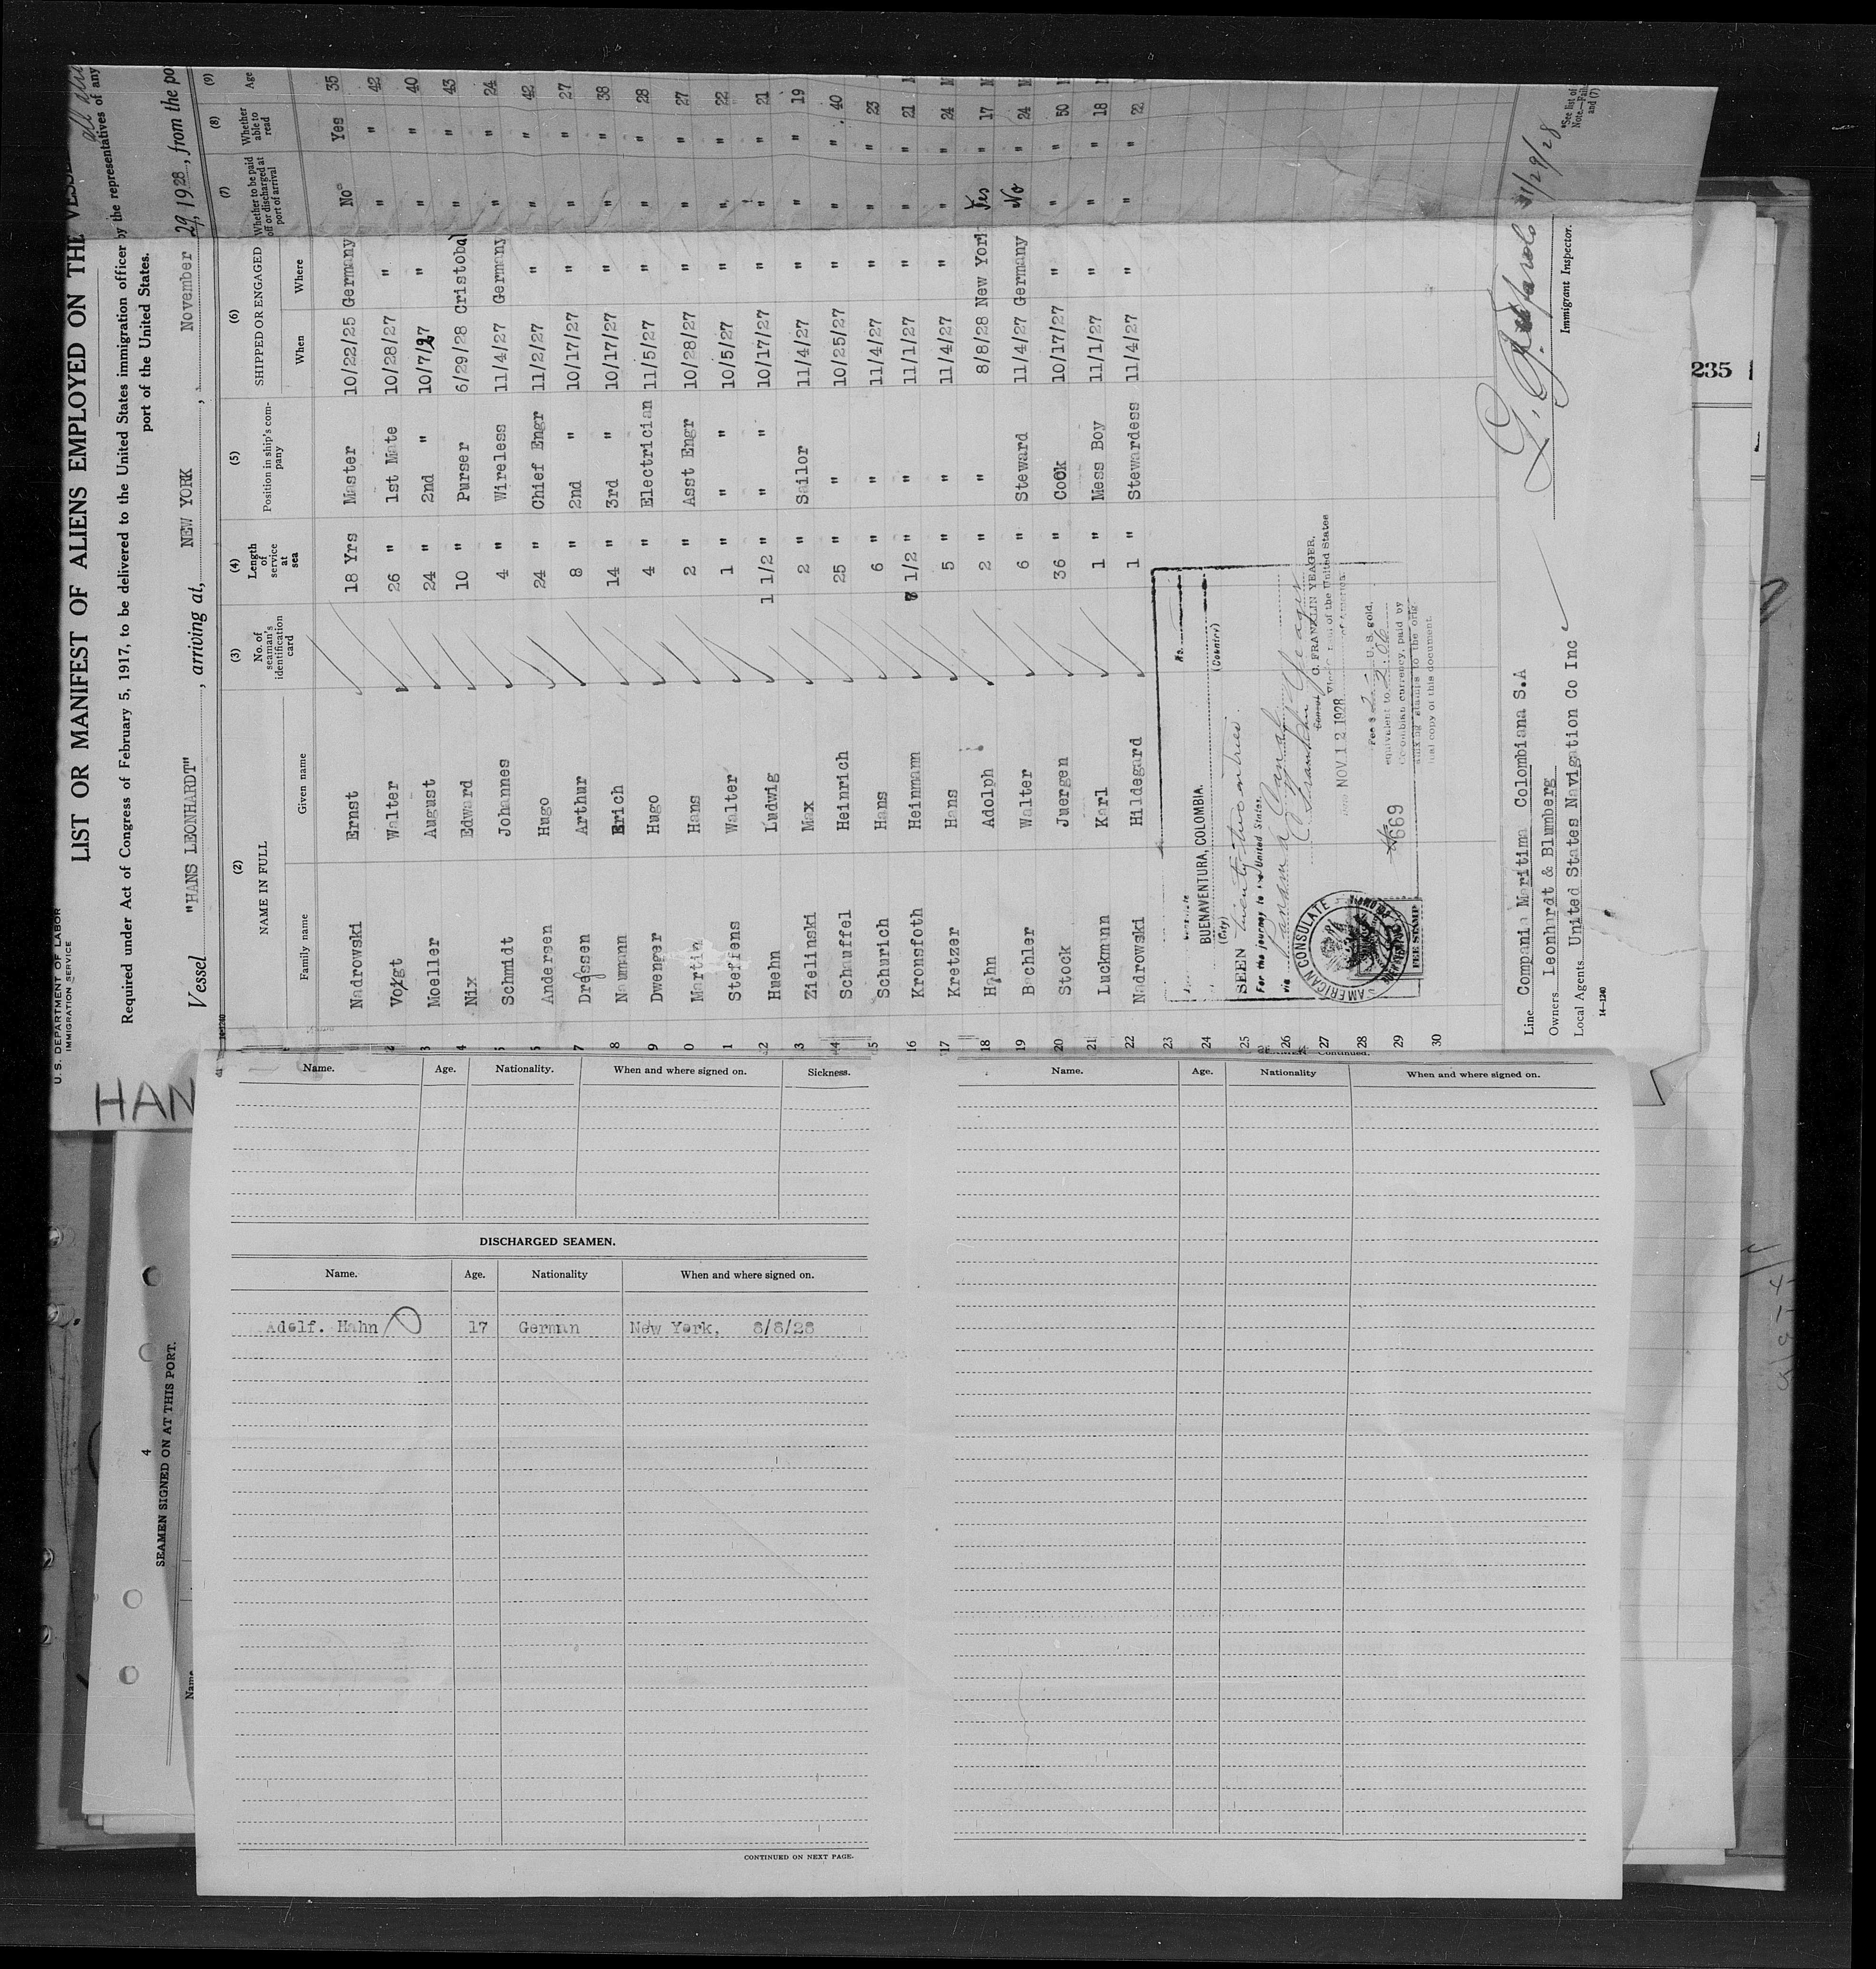 U. S. DEPARTMENT OF LABOR
IMMIGRATION SERVICE
LIST OR MANIFEST OF ALIENS EMPLOYED ON THE VESSE
Required under Act of Congress of February 5, 1917, to be delivered to the United States immigration officer by the representatives of any
port of the United States.
Vessel "HANS LEONHARDT", arriving at, NEW YORK, November 29, 1928, from the po
(2) (3) (4) (5) (6) (7) (8) (9)
NAME IN FULL
Family name Given name
No. of seaman's identification card
Length of service at sea
Position in ship's company
SHIPPED OR ENGAGED
When Where
Whether to be paid off or discharged at port of arrival
Whether able to read
Age
Nadrowski Ernst 18 Yrs Master 10/22/25 Germany No Yes 35
2 Voigt Walter 26 " 1st Mate 10/28/27 " " " 42
3 Moeller August 24 " 2nd " 10/7/27 " " " 40
4 Nix Edward 10 " Purser 6/29/28 Cristobal " " 43
5 Schmidt Johannes 4 " Wireless 11/4/27 Germany " " 24
Andersen Hugo 24 " Chief Engr 11/2/27 " " " 42
7 Dressen Arthur 8 " 2nd " 10/17/27 " " " 27
8 Naumann Erich 14 " 3rd " 10/17/27 " " " 38
9 Dwenger Hugo 4 " Electrician 11/5/27 " " " 28
0 Martin Hans 2 " Asst Engr 10/28/27 " " " 27
1 Steffens Walter 1 " " " 10/5/27 " " " 22
12 Huehn Ludwig 1 1/2 " " " 10/17/27 " " " 21
3 Zielinski Max 2 " Sailor 11/4/27 " " " 19
14 Schauffel Heinrich 25 " " 10/25/27 " " " 40
15 Schurich Hans 6 " " 11/4/27 " " " 23
16 Kronsfoth Heinmann 1/2 " " 11/1/27 " " " 21
17 Kretzer Hans 5 " " 11/4/27 " " " 24
18 Hahn Adolph 2 " " 8/8/28 New York Yes " 17
19 Bachler Walter 6 " Steward 11/4/27 Germany No " 24
20 Stock Juergen 36 " Cook 10/17/27 " " " 50
21 Luckmann Karl 1 " Mess Boy 11/1/27 " " " 18
22 Nadrowski Hildegard 1 " Stewardess 11/4/27 " " " 22
23
24
25
26
27
28
29
30
No.
BUENAVENTURA, COLOMBIA.
(City) (Country)
SEEN twenty two entries.
For the journey to the United States
via Panama Canal
C. Franklin Yeager
C. FRANKLIN YEAGER.
of the United States
of America.
NOV. 12 1928
U. S. gold,
equivalent to
Colombian currency, paid by
affixing stamps to the orig-
inal copy of this document.
669
AMERICAN CONSULATE
FEE STAMP
Line Compania Maritima Colombiana S.A
Owners Leonhardt & Blumberg
Local Agents United States Navigation Co Inc
14—1240
11/29/28
Immigrant Inspector.
*See list of
Note.—Fail
and (7)
235
HAN
4
SEAMEN SIGNED ON AT THIS PORT.
Name
Name. Age. Nationality. When and where signed on. Sickness.
DISCHARGED SEAMEN.
Name. Age. Nationality When and where signed on.
Adolf. Hahn 17 German New York, 8/8/28
CONTINUED ON NEXT PAGE.
Continued.
Name. Age. Nationality When and where signed on.